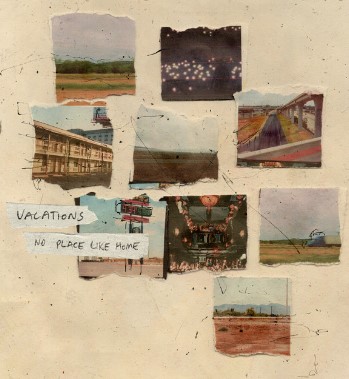 VACATIONS
NO PLACE LIKE HOME